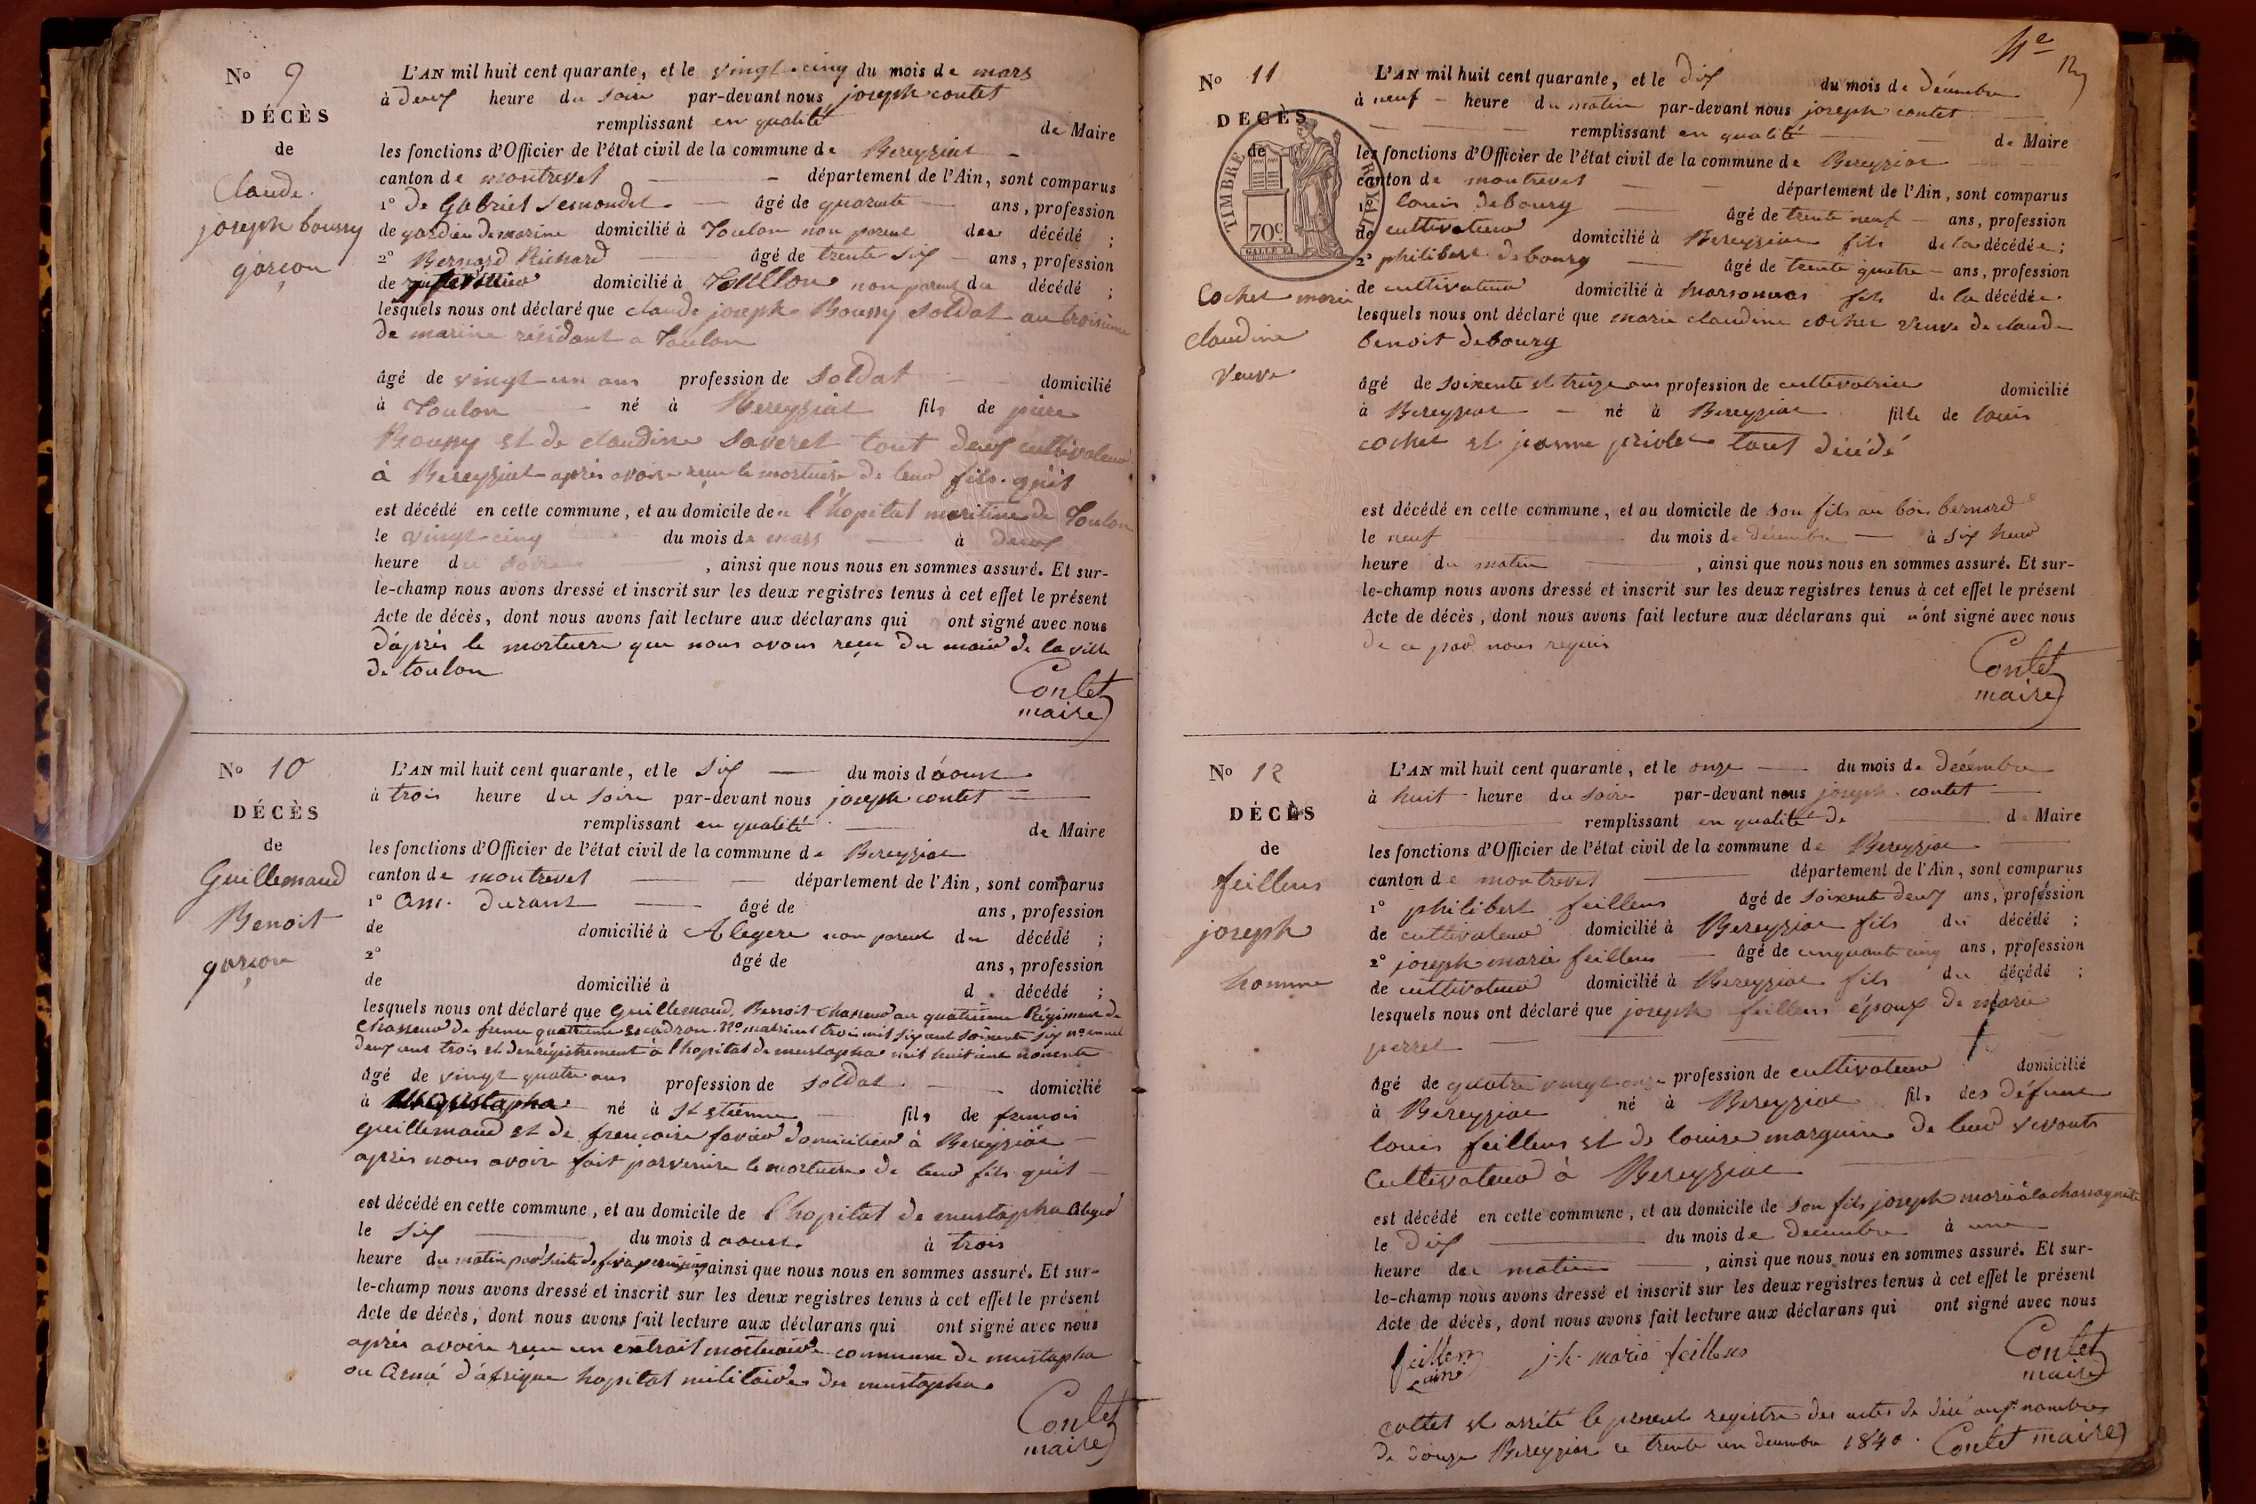 No 9
DÉCÈS
de
Claude
joseph boussy
garçon
L'AN mil huit cent quarante, et le vingt-cinq du mois de mars
à deux heure du soire par-devant nous joseph contet
remplissant en qualité de Maire
les fonctions d'Officier de l'état civil de la commune de Bereyziat
canton de montrevel département de l'Ain, sont comparus
1° De Gabriel Semondet âgé de quarante ans, profession
de gardien de marine domicilié à Toulon non parent du décédé ;
2° Bernard Richard âgé de trente six ans, profession
de domicilié à Toullon non parent du décédé ;
lesquels nous ont déclaré que claude joseph Boussy soldat au troisième
de marine résidant a Toulon
âgé de vingt-un ans profession de soldat domicilié
à Toulon né à Bereyziat fils de pierre
Boussy et de claudine Saveret tout deux cultivateur
à Bereyziat après avoir reçu le mortuere de leur fils qu'il
est décédé en cette commune, et au domicile de l'hopital maritime de Toulon
le vingt-cinq du mois de mars à deux
heure du soire, ainsi que nous nous en sommes assuré. Et sur-
le-champ nous avons dressé et inscrit sur les deux registres tenus à cet effet le présent
Acte de décès, dont nous avons fait lecture aux déclarans qui ont signé avec nous
d'après le mortuere que nous avons reçu du maire de la ville
de toulon
Contet
maire
No 10
DÉCÈS
de
Guillemaud
Benoit
garçon
L'AN mil huit cent quarante, et le six du mois d'aoust
à trois heure du soire par-devant nous joseph contet
remplissant en qualité de Maire
les fonctions d'Officier de l'état civil de la commune de Bereyziat
canton de montrevel département de l'Ain, sont comparus
1° durant âgé de ans, profession
de domicilié à Alegere non parent du décédé ;
2° âgé de ans, profession
de domicilié à d décédé ;
lesquels nous ont déclaré que Guillemaud Benoit chasseur au quatrieme Régiment de
chasseur de quatrieme escadron No matricul trois mil six cent soixente six
deux cent trois et d'enrégistrement à l'hopital de mustapha mil huit cent nonente
âgé de vingt quatre ans profession de soldat domicilié
à Mustapha né à St etienne fils de francois
Guillemaud et de francoise favier domicilier à Bereyziat
après nous avoir fait parvenire le mortuere de leur fils qu'il
est décédé en cette commune, et au domicile de l'hopital de mustapha Alger
le six du mois d aoust à trois
heure du matin par suite de ainsi que nous nous en sommes assuré. Et sur-
le-champ nous avons dressé et inscrit sur les deux registres tenus à cet effet le présent
Acte de décès, dont nous avons fait lecture aux déclarans qui ont signé avec nous
après avoire reçu un extrait mortuaire commune de mustapha
ou Armé d'afrique hopital militaire du mustapha
Contet
maire
4e
No 11
DÉCÈS
de
TIMBRE ROYAL
70c
Cochet marie
claudine
veuve
L'AN mil huit cent quarante, et le dix du mois de décembre
à neuf heure du matin par-devant nous joseph contet
remplissant en qualité de Maire
les fonctions d'Officier de l'état civil de la commune de Bereyziat
canton de montrevel département de l'Ain, sont comparus
1° louis debourg âgé de trente neuf ans, profession
de cultivateur domicilié à Bereyziat fils de la décédée ;
2° philibert debourg âgé de trente quatre ans, profession
de cultivateur domicilié à marsonnas fils de la décédée.
lesquels nous ont déclaré que marie claudine cochet veuve de claude
benoit debourg
âgé de soixente et treize ans profession de cultivatrice domicilié
à Bereyziat né à Bereyziat fille de louis
cochet et jeanne tout décédé
est décédé en cette commune, et au domicile de son fils au bois bernard
le neuf du mois de décembre à six heur
heure du matin, ainsi que nous nous en sommes assuré. Et sur-
le-champ nous avons dressé et inscrit sur les deux registres tenus à cet effet le présent
Acte de décès, dont nous avons fait lecture aux déclarans qui n'ont signé avec nous
de ce par nous requis
Contet
maire
No 12
DÉCÈS
de
feillens
joseph
homme
L'AN mil huit cent quarante, et le onze du mois de décembre
à huit heure du soire par-devant nous joseph contet
remplissant en qualité de de Maire
les fonctions d'Officier de l'état civil de la commune de Bereyziat
canton de montrevel département de l'Ain, sont comparus
1° philibert feillens âgé de soixente deux ans, profession
de cultivateur domicilié à Bereyziat fils du décédé ;
2° joseph marie feillens âgé de cinquante cinq ans, profession
de cultivateur domicilié à Bereyziat fils du décédé ;
lesquels nous ont déclaré que joseph feillens époux de marie
perret
âgé de quatre vingt onze profession de cultivateur domicilié
à Bereyziat né à Bereyziat fils des défunt
louis feillens et de louise marguin de leur vivants
Cultivateur à Bereyziat
est décédé en cette commune, et au domicile de son fils joseph marie à la
le dix du mois de decembre à une
heure du matin, ainsi que nous nous en sommes assuré. Et sur-
le-champ nous avons dressé et inscrit sur les deux registres tenus à cet effet le présent
Acte de décès, dont nous avons fait lecture aux déclarans qui ont signé avec nous
feillens j-h- marie feillens
Contet
maire
et arrêté le present registre des actes de décé nombre
de douze Bereyziat ce trente un decembre 1840. Contet maire